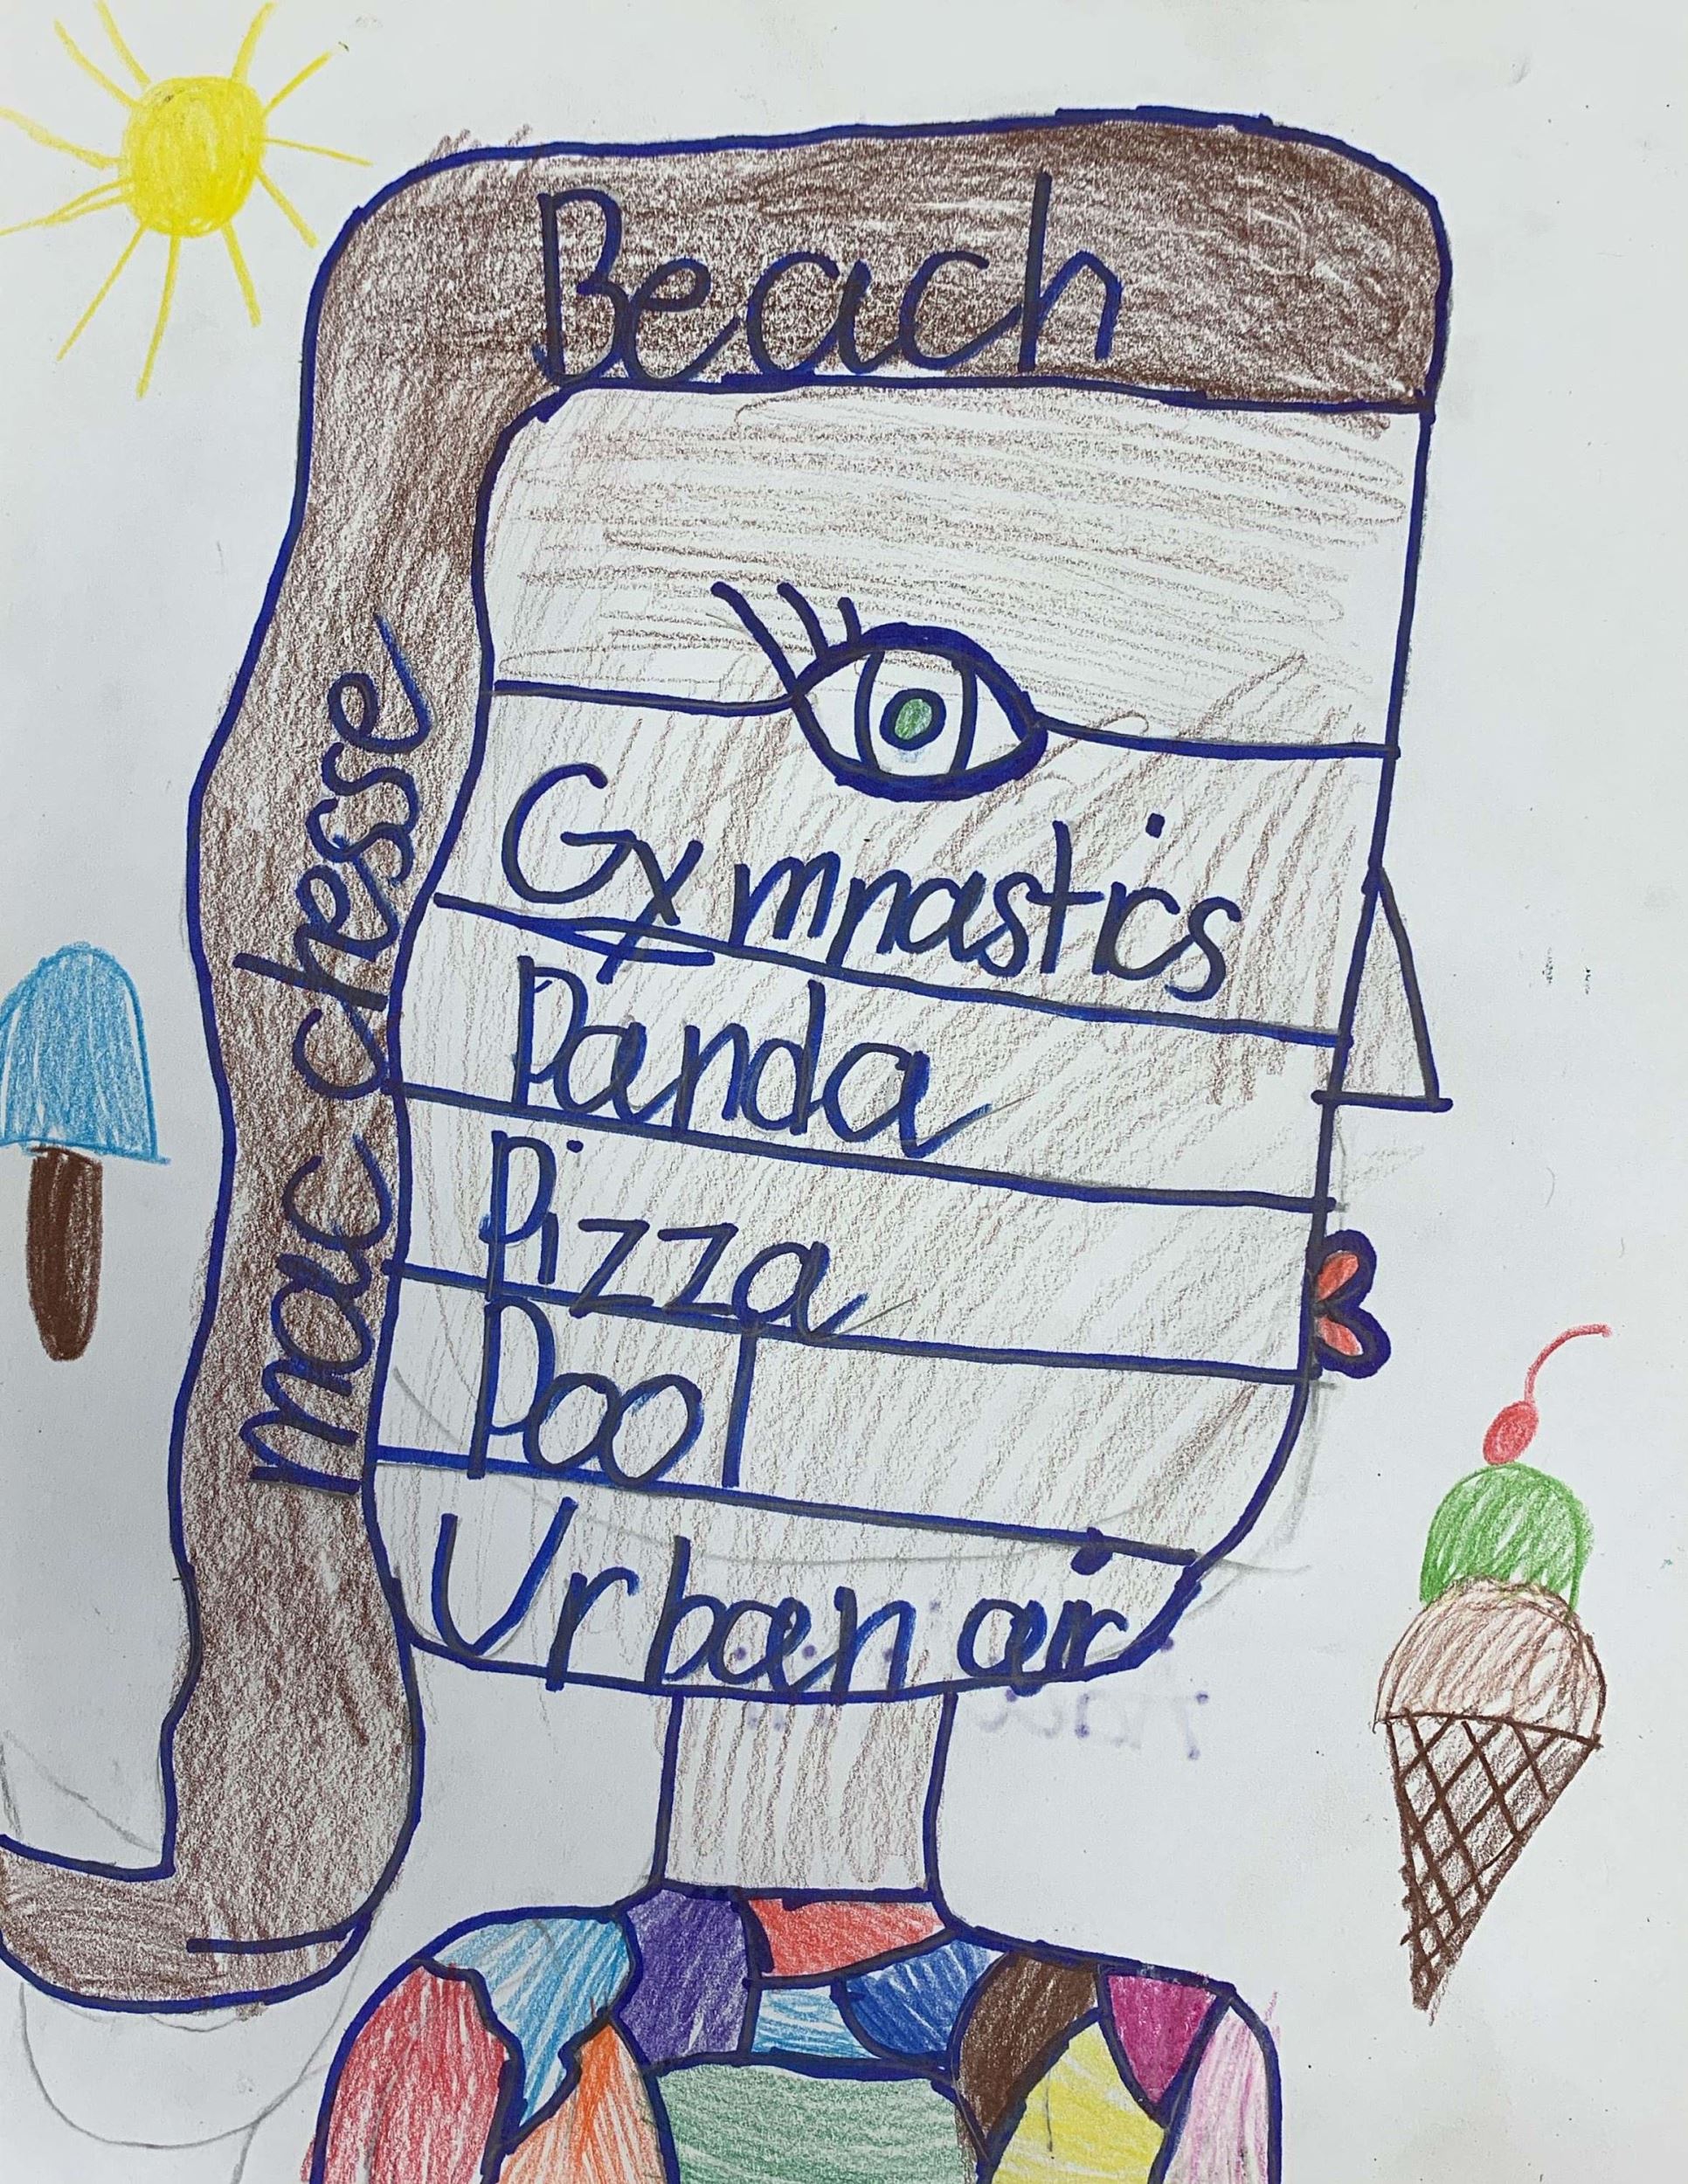 Beach
mac chesse
Gymnastics
Panda
Pizza
Pool
Urban air